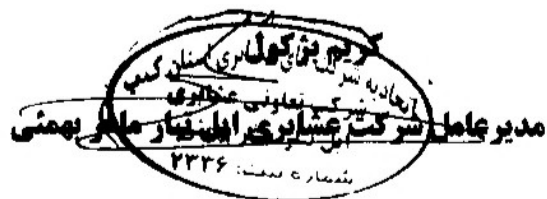 کریم پژکول
اتحادیه شرکت عشایری استان
شرکت تعاونی عشایری
مدیر عامل شرکت عشایری ایل تبار بهمئی
شماره ثبت: ۲۳۳۶